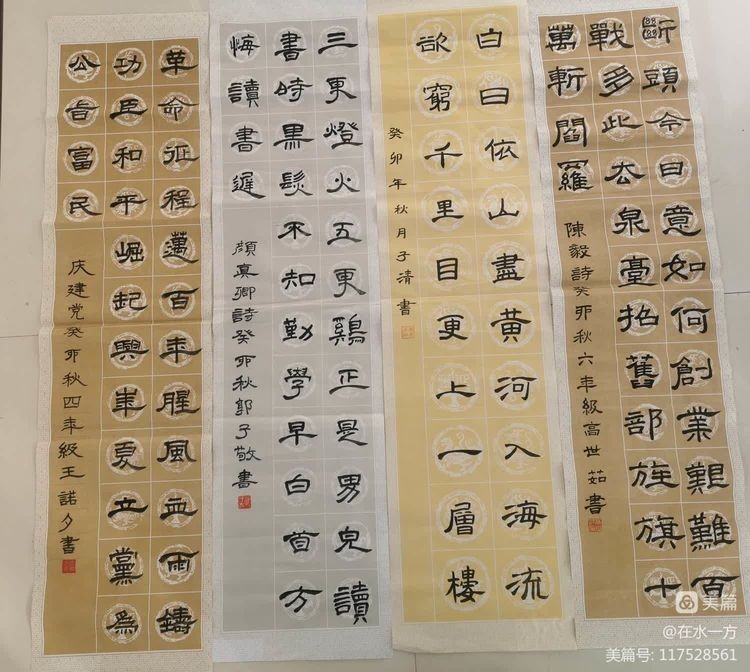 斷頭今日意如何創業艱難百
戰多此去泉臺招舊部旌旗十
萬斬閻羅
陳毅詩癸卯秋六年級高世茹書
白日依山盡黄河入海流
欲窮千里目更上一層樓
癸卯年秋月子清書
三更燈火五更鷄正是男兒讀
書時黑髮不知勤學早白首方
悔讀書遲
顔真卿詩癸卯秋郭子敬書
革命征程邁百年腥風血雨鑄
功臣和平崛起興華夏立黨為
公旨富民
庆建党癸卯秋四年級王諾夕書
美篇
@在水一方
美篇号: 117528561